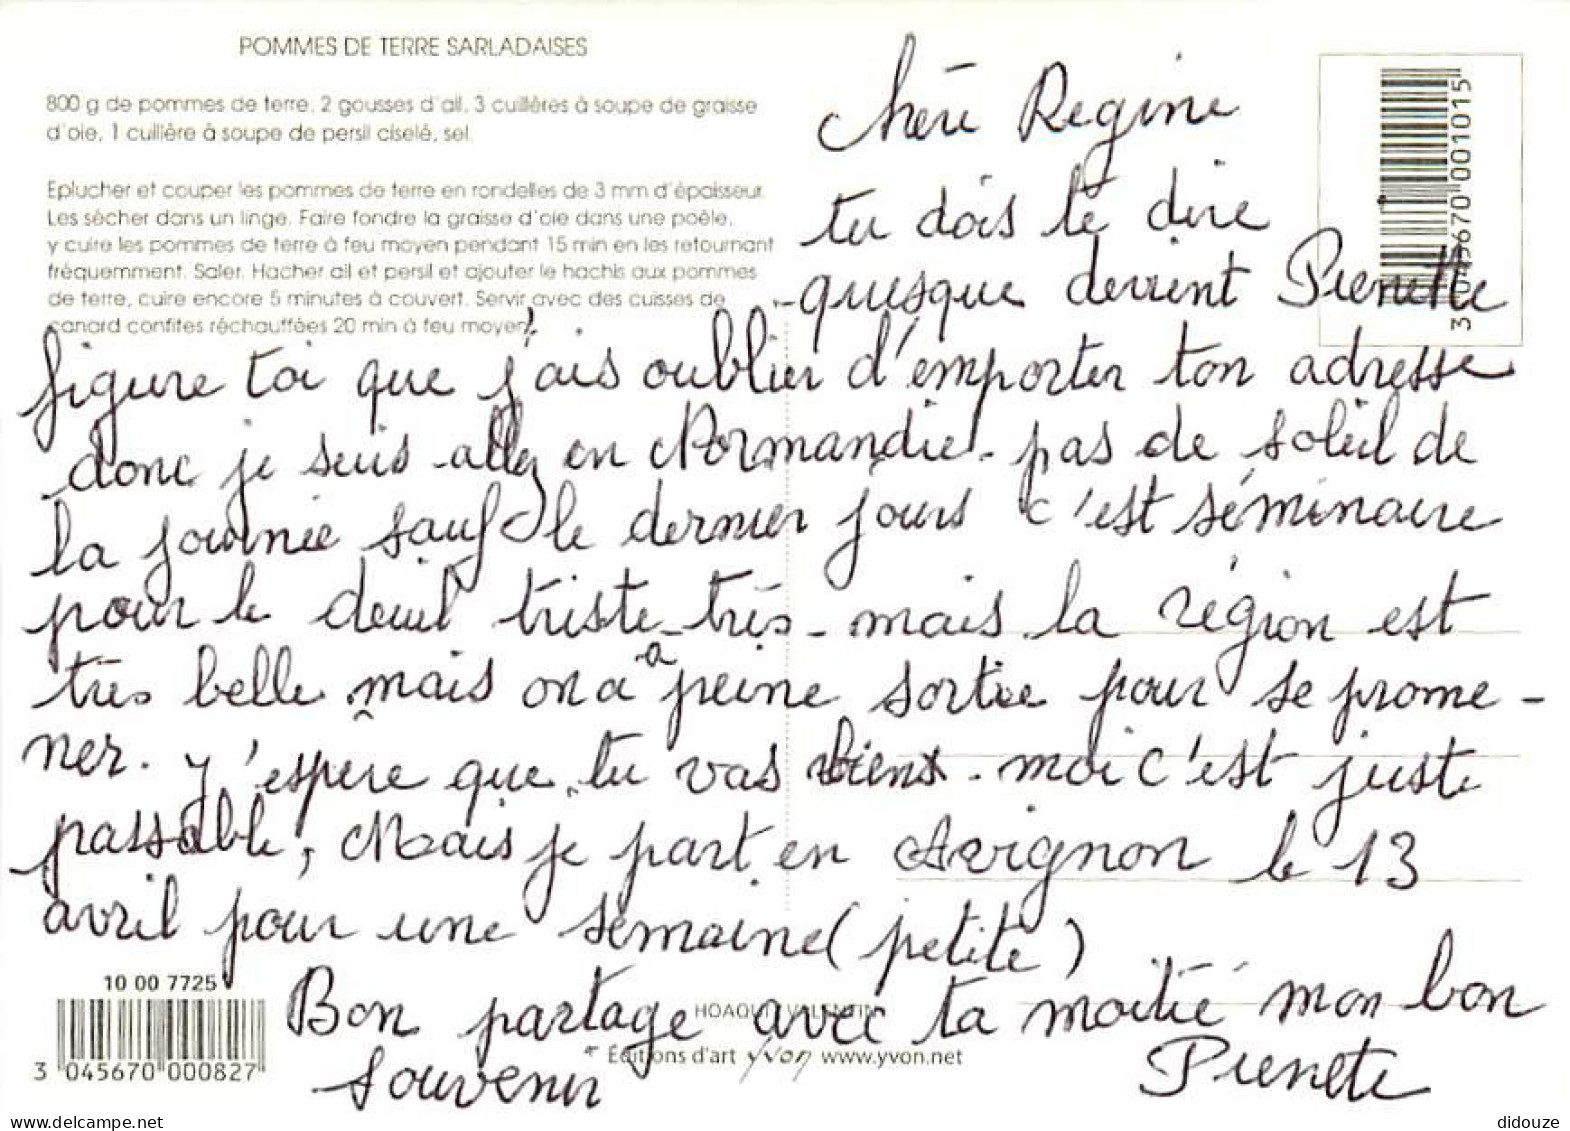 POMMES DE TERRE SARLADAISES
800 g de pommes de terre, 2 gousses d'ail, 3 cuillères à soupe de graisse
d'oie, 1 cuillère à soupe de persil ciselé, sel.
Eplucher et couper les pommes de terre en rondelles de 3 mm d'épaisseur.
Les sécher dans un linge. Faire fondre la graisse d'oie dans une poêle,
y cuire les pommes de terre à feu moyen pendant 15 min en les retournant
fréquemment. Saler. Hacher ail et persil et ajouter le hachis aux pommes
de terre, cuire encore 5 minutes à couvert. Servir avec des cuisses de
canard confites réchauffées 20 min à feu moyen.
3 045670 001015
chère Regine
tu dois te dire
quesque devient Pierrette
figure toi que j'ais oublier d'emporter ton adresse
donc je suis allez en Normandie. pas de soleil de
la journée sauf le dernier jours c'est séminaire
pour le deuil triste-très-mais la région est
très belle mais on a à peine sortie pour se prome-
ner. y'espère que tu vas biens. moi c'est juste
passable, Mais je part en Avignon le 13
avril pour une semaine (petite)
Bon partage avec ta moitié mon bon
souvenir Pierrete
10 00 7725
3 045670 000827
HOAQUI / VALENTIN
Éditions d'art yvon www.yvon.net
www.delcampe.net
didouze